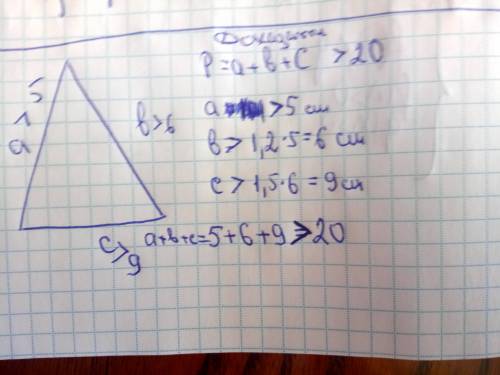 P = a + b + c > 20
a > 5 см
b > 1,2 · 5 = 6 см
c > 1,5 · 6 = 9 см
a + b + c = 5 + 6 + 9 > 20
a > 5
b > 6
c > 9